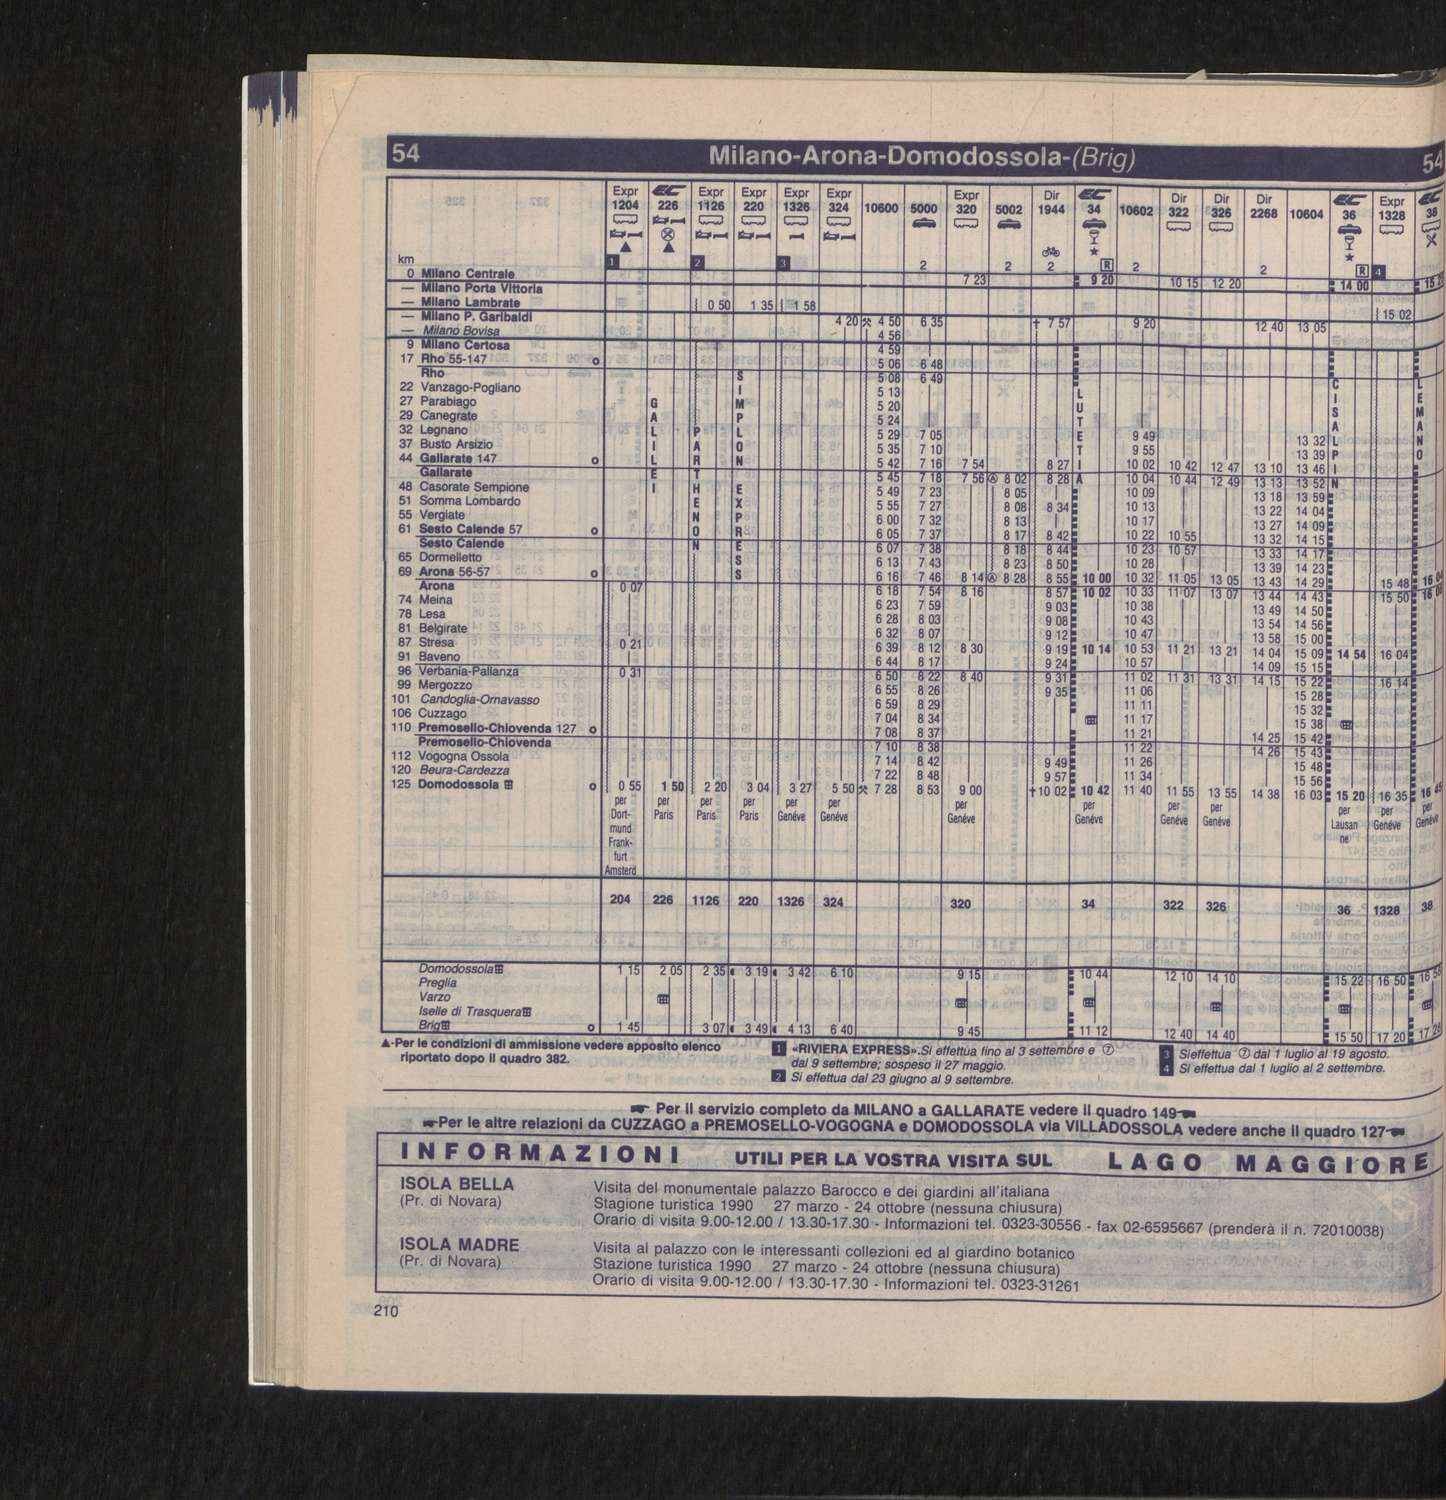 54 Milano-Arona-Domodossola-(Brig) 54
Expr 1204 EC 226 Expr 1126 Expr 220 Expr 1326 Expr 324 10600 5000 Expr 320 5002 Dir 1944 EC 34 10602 Dir 322 Dir 326 Dir 2268 10604 EC 36 Expr 1328 EC 38
1 2 3 2 2 2 R 2 2 R 4
km
0 Milano Centrale 7 23 9 20 10 15 12 20 14 00
— Milano Porta Vittoria
— Milano Lambrate 0 50 1 35 1 58
— Milano P. Garibaldi 4 20 4 50 6 35 † 7 57 9 20 12 40 13 05 15 02
— Milano Bovisa 4 56
9 Milano Certosa 4 59
17 Rho 55-147 o 5 06 6 48
Rho 5 08 6 49
22 Vanzago-Pogliano 5 13
27 Parabiago 5 20
29 Canegrate 5 24
32 Legnano 5 29 7 05 9 49
37 Busto Arsizio 5 35 7 10 9 55 13 32
44 Gallarate 147 o 5 42 7 16 7 54 8 27 10 02 10 42 12 47 13 10 13 46
Gallarate 5 45 7 18 7 56 Ⓐ 8 02 8 28 10 04 10 44 12 49 13 13 13 52
48 Casorate Sempione 5 49 7 23 8 05 10 09 13 18 13 59
51 Somma Lombardo 5 55 7 27 8 08 8 34 10 13 13 22 14 04
55 Vergiate 6 00 7 32 8 13 10 17 13 27 14 09
61 Sesto Calende 57 o 6 05 7 37 8 17 8 42 10 22 10 55 13 32 14 15
Sesto Calende 6 07 7 38 8 18 8 44 10 23 10 57 13 33 14 17
65 Dormelletto 6 13 7 43 8 23 8 50 10 28 13 39 14 23
69 Arona 56-57 o 6 16 7 46 8 14 Ⓐ 8 28 8 55 10 00 10 32 11 05 13 05 13 43 14 29 15 48 16 04
Arona 0 07 6 18 7 54 8 16 8 57 10 02 10 33 11 07 13 07 13 44 14 43 15 50
74 Meina 6 23 7 59 9 03 10 38 13 49 14 50
78 Lesa 6 28 8 03 9 08 10 43 13 54 14 56
81 Belgirate 6 32 8 07 9 12 10 47 13 58 15 00
87 Stresa 0 21 6 39 8 12 8 30 9 19 10 14 10 53 11 21 13 21 14 04 15 09 14 54 16 04
91 Baveno 6 44 8 17 9 24 10 57 14 09 15 15
96 Verbania-Pallanza 0 31 6 50 8 22 8 40 9 31 11 02 11 31 13 31 14 15 15 22 16 14
99 Mergozzo 6 55 8 26 9 35 11 06 15 28
101 Candoglia-Ornavasso 6 59 8 29 11 11 15 32
106 Cuzzago 7 04 8 34 11 17 15 38
110 Premosello-Chiovenda 127 o 7 08 8 37 11 21 14 25 15 42
Premosello-Chiovenda 7 10 8 38 11 22 14 26 15 43
112 Vogogna Ossola 7 14 8 42 9 49 11 26 15 48
120 Beura-Cardezza 7 22 8 48 9 57 11 34 15 56
125 Domodossola o 0 55 1 50 2 20 3 04 3 27 5 50 7 28 8 53 9 00 †10 02 10 42 11 40 11 55 13 55 14 38 16 03 15 20 16 35 16 45
GALILEI
PARTHENON
SIMPLON EXPRESS
LUTETIA
CISALPIN
LEMANO
per Dortmund Frankfurt Amsterd
per Paris
per Paris
per Paris
per Genéve
per Genéve
per Genéve
per Genéve
per Genéve
per Genéve
per Lausanne
per Genéve
per Genéve
204 226 1126 220 1326 324 320 34 322 326 36 1328 38
Domodossola 1 15 2 05 2 35 3 19 3 42 6 10 9 15 10 44 12 10 14 10 15 22 16 50
Preglia
Varzo
Iselle di Trasquera
Brig o 1 45 3 07 3 49 4 13 6 40 9 45 11 12 12 40 14 40 15 50 17 20 17 28
▲-Per le condizioni di ammissione vedere apposito elenco
riportato dopo il quadro 382.
1 «RIVIERA EXPRESS».Si effettua fino al 3 settembre e ⑦
dal 9 settembre; sospeso il 27 maggio.
2 Si effettua dal 23 giugno al 9 settembre.
3 Sieffettua ⑦ dal 1 luglio al 19 agosto.
4 Si effettua dal 1 luglio al 2 settembre.
Per il servizio completo da MILANO a GALLARATE vedere il quadro 149
Per le altre relazioni da CUZZAGO a PREMOSELLO-VOGOGNA e DOMODOSSOLA via VILLADOSSOLA vedere anche il quadro 127
INFORMAZIONI UTILI PER LA VOSTRA VISITA SUL LAGO MAGGIORE
ISOLA BELLA
(Pr. di Novara)
Visita del monumentale palazzo Barocco e dei giardini all'italiana
Stagione turistica 1990 27 marzo - 24 ottobre (nessuna chiusura)
Orario di visita 9.00-12.00 / 13.30-17.30 - Informazioni tel. 0323-30556 - fax 02-6595667 (prenderà il n. 72010038)
ISOLA MADRE
(Pr. di Novara)
Visita al palazzo con le interessanti collezioni ed al giardino botanico
Stazione turistica 1990 27 marzo - 24 ottobre (nessuna chiusura)
Orario di visita 9.00-12.00 / 13.30-17.30 - Informazioni tel. 0323-31261
210